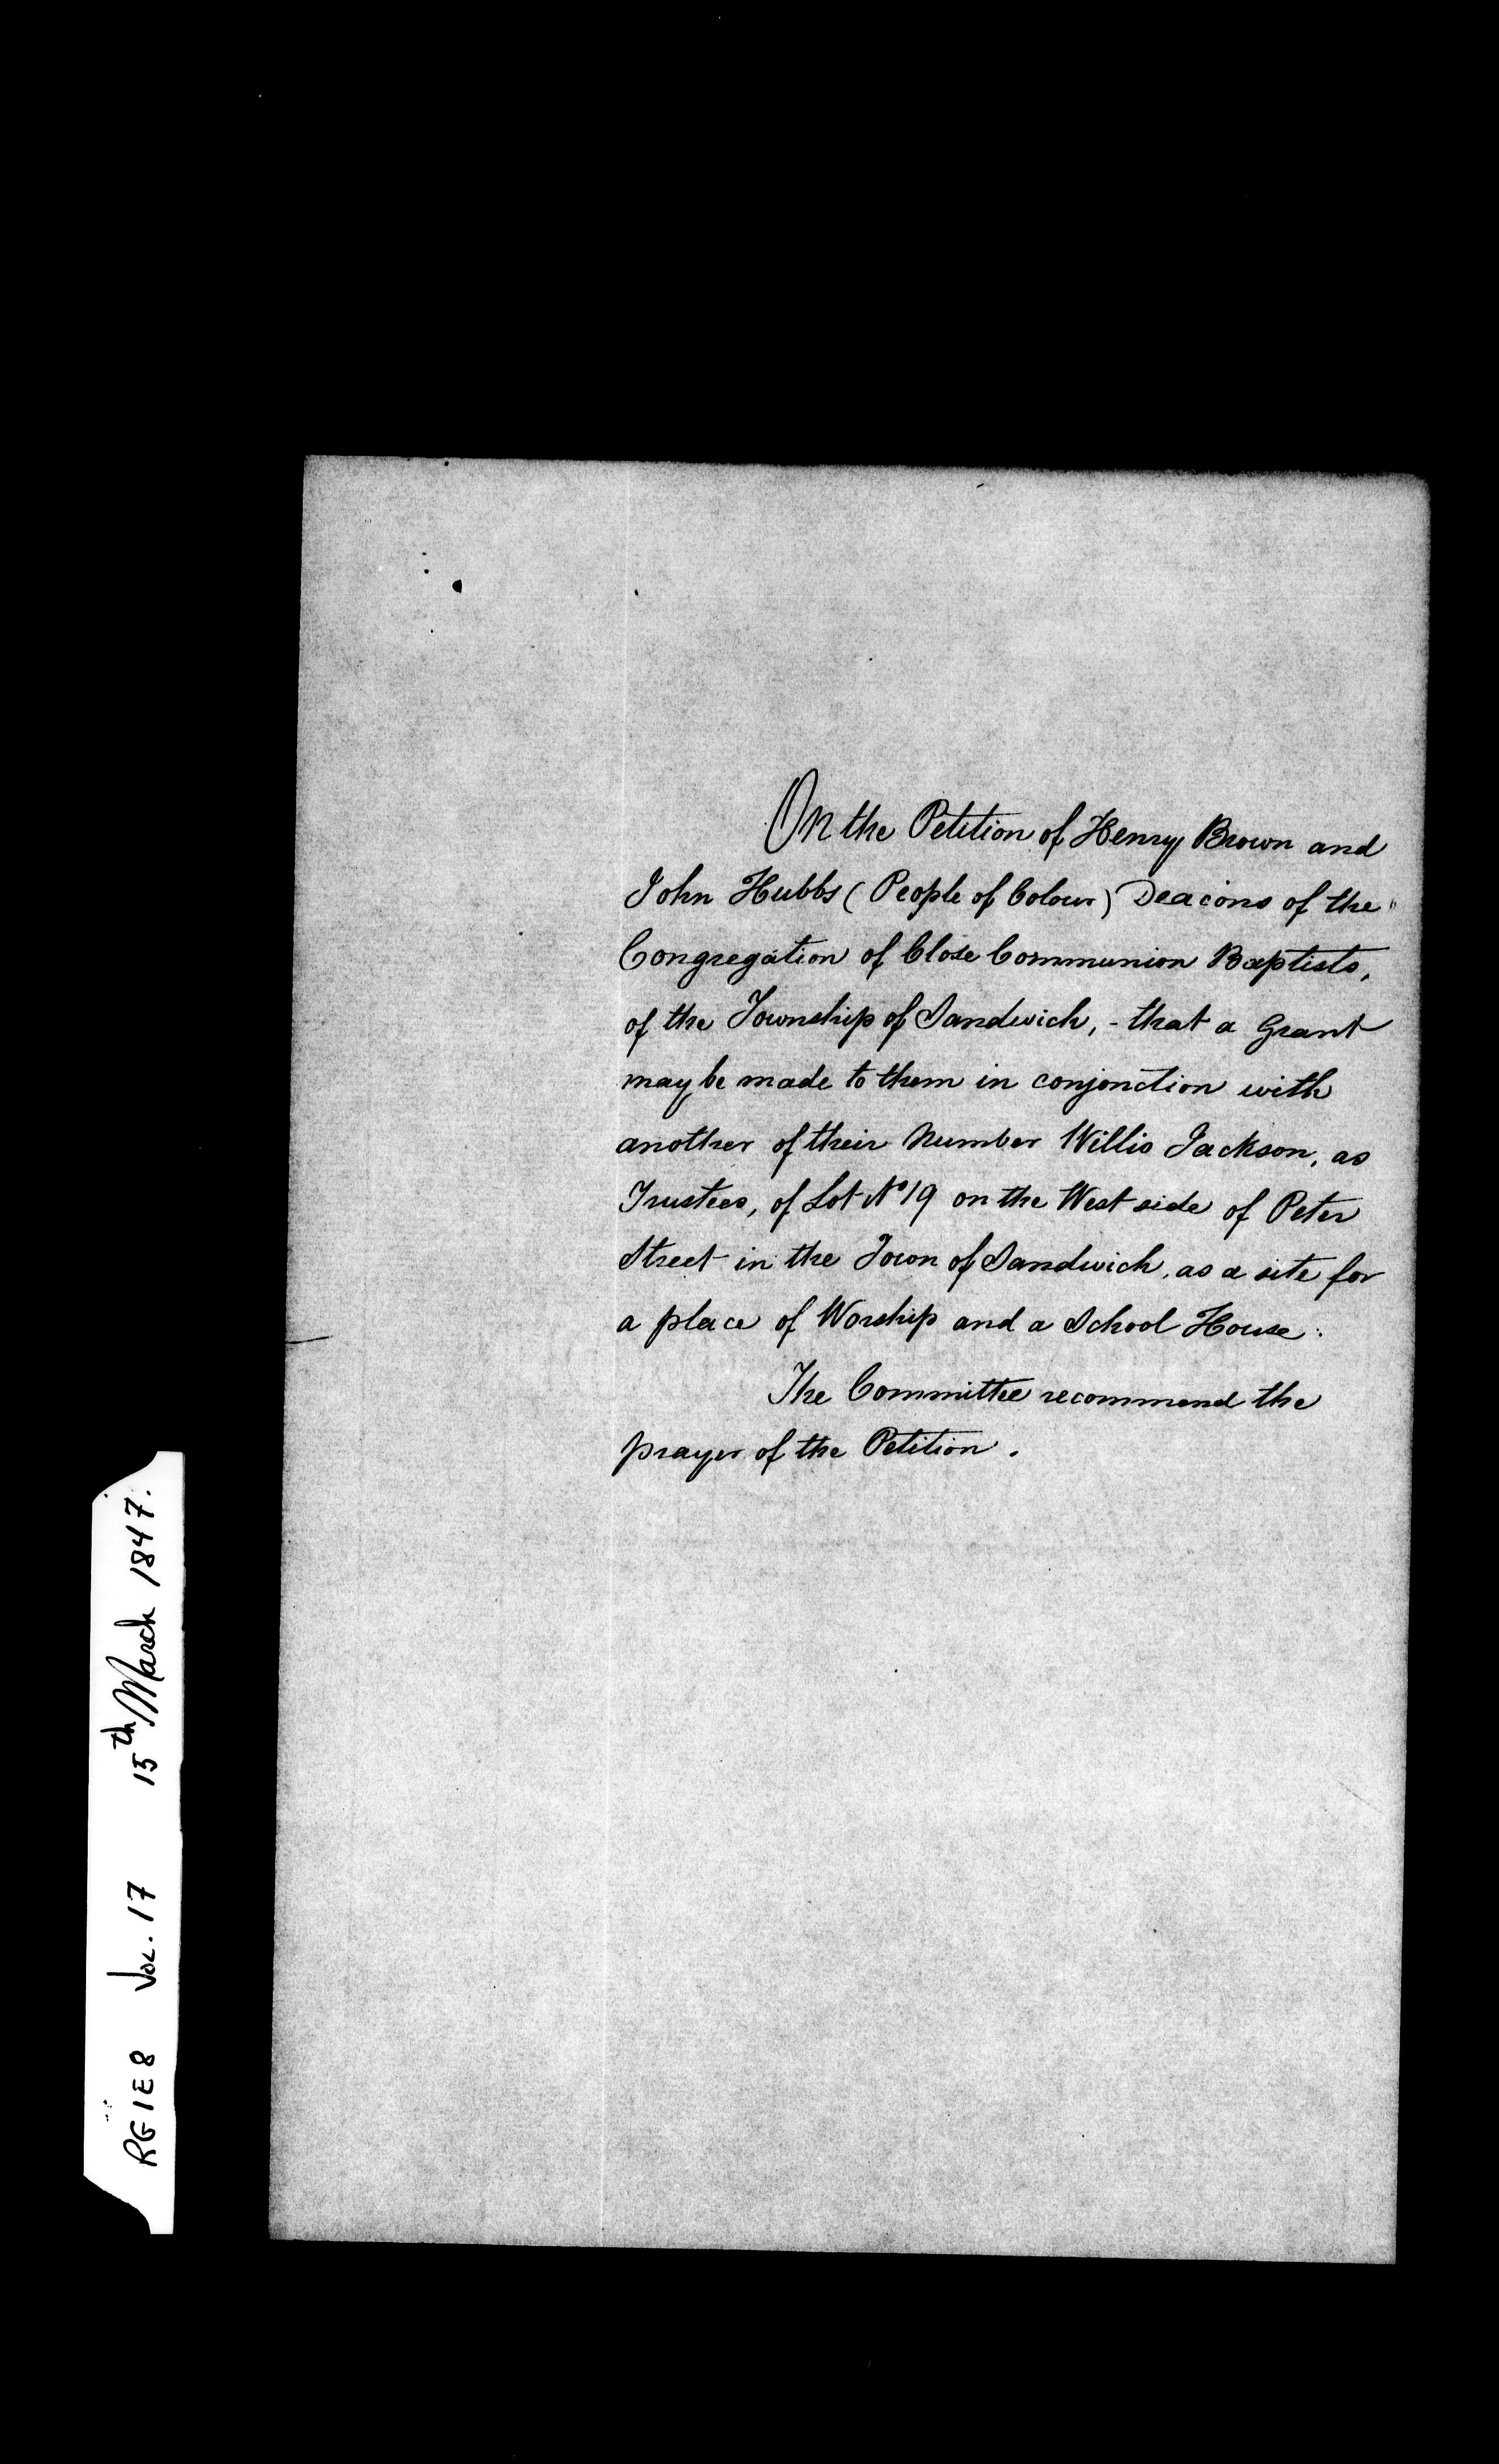 On the Petition of Henry Brown and
John Hubbs (People of Colour) Deacons of the
Congregation of Close Communion Baptists,
of the Township of Sandwich, - that a Grant
may be made to them in conjonction with
another of their Number Willis Jackson, as
Trustees, of Lot No 19 on the West side of Peter
Street in the Town of Sandwich, as a site for
a place of Worship and a School House:
The Committee recommend the
prayer of the Petition.
RG1E8 Vol. 17 15th March 1847.